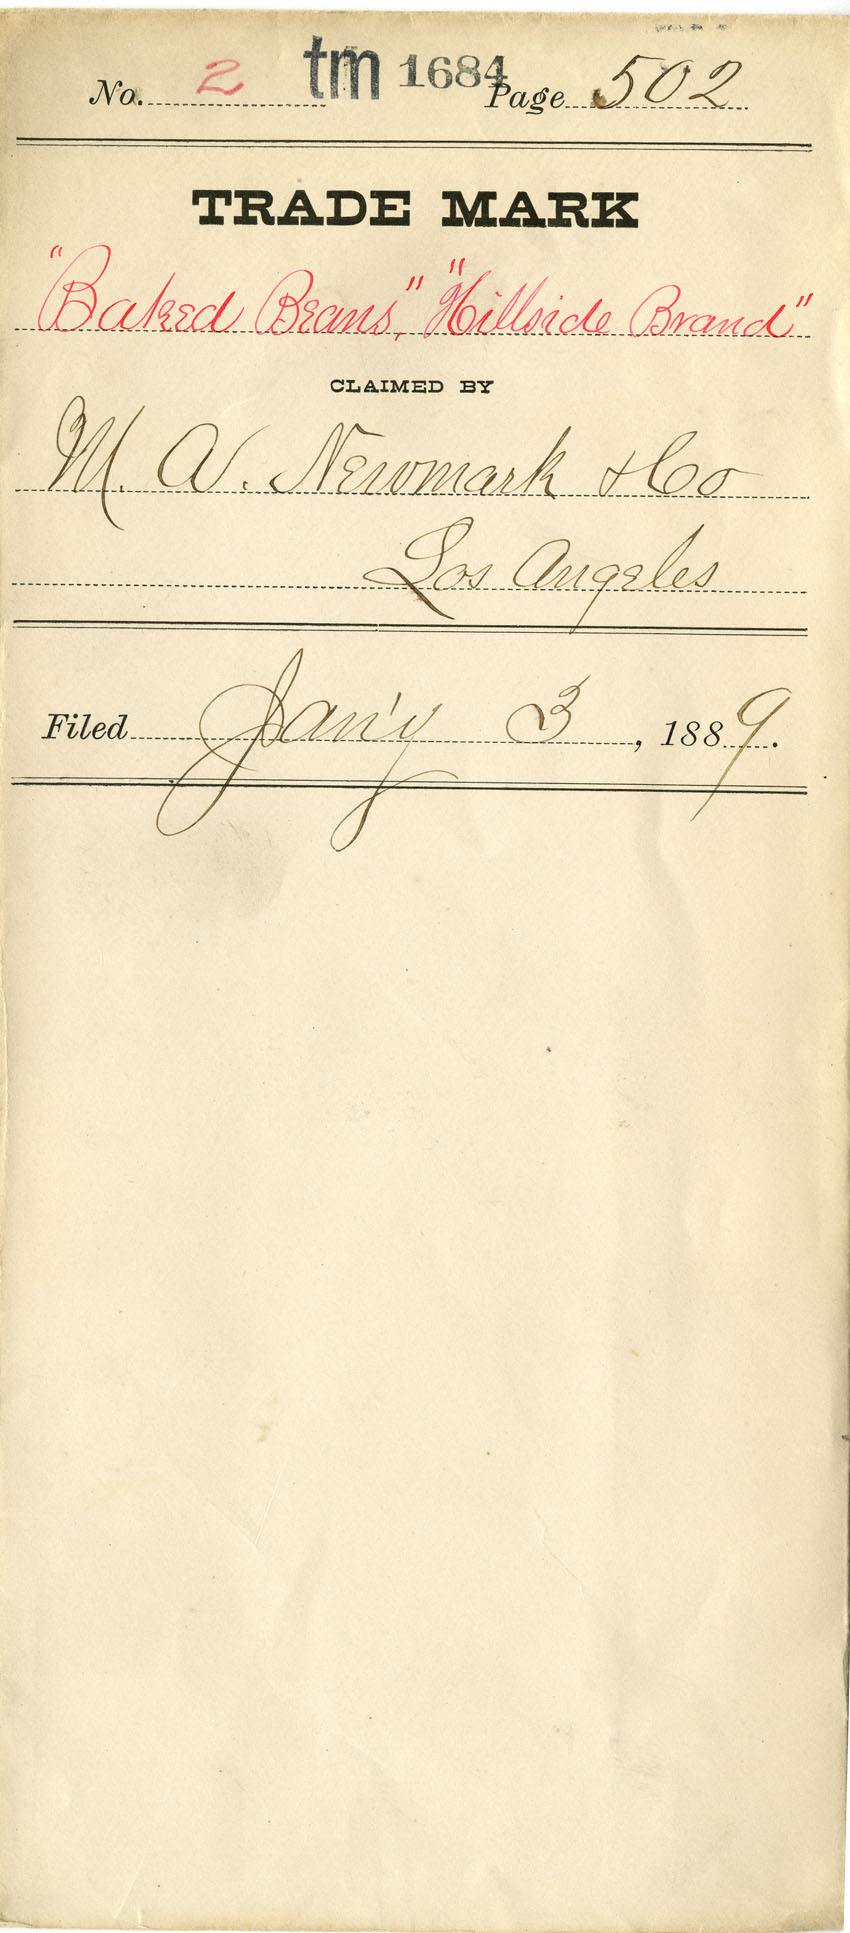 No. 2 tm 1684 Page 502
TRADE MARK
"Baked Beans," "Hillside Brand"
CLAIMED BY
M. A. Newmark & Co
Los Angeles
Filed Jan'y 3, 1889.